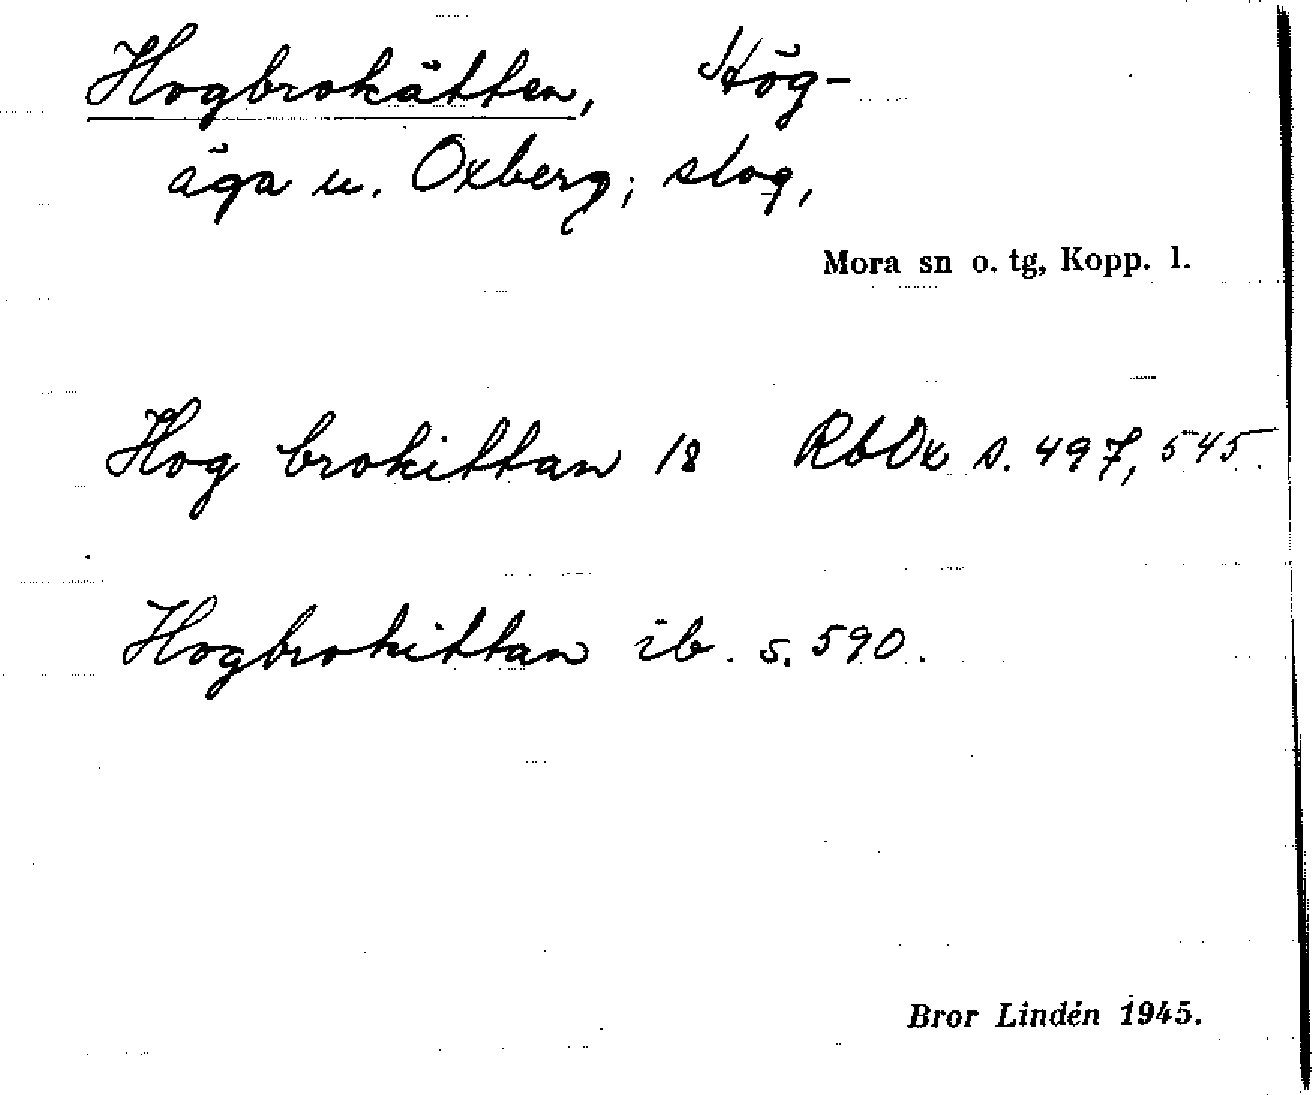 Hogbrokätten, Hög-
äga u. Oxberg; slog,
Mora sn o. tg, Kopp. l.
Hog brokittan 18 RbOx s. 497, 545.
Hogbrokittan ib. s. 590.
Bror Lindén 1945.